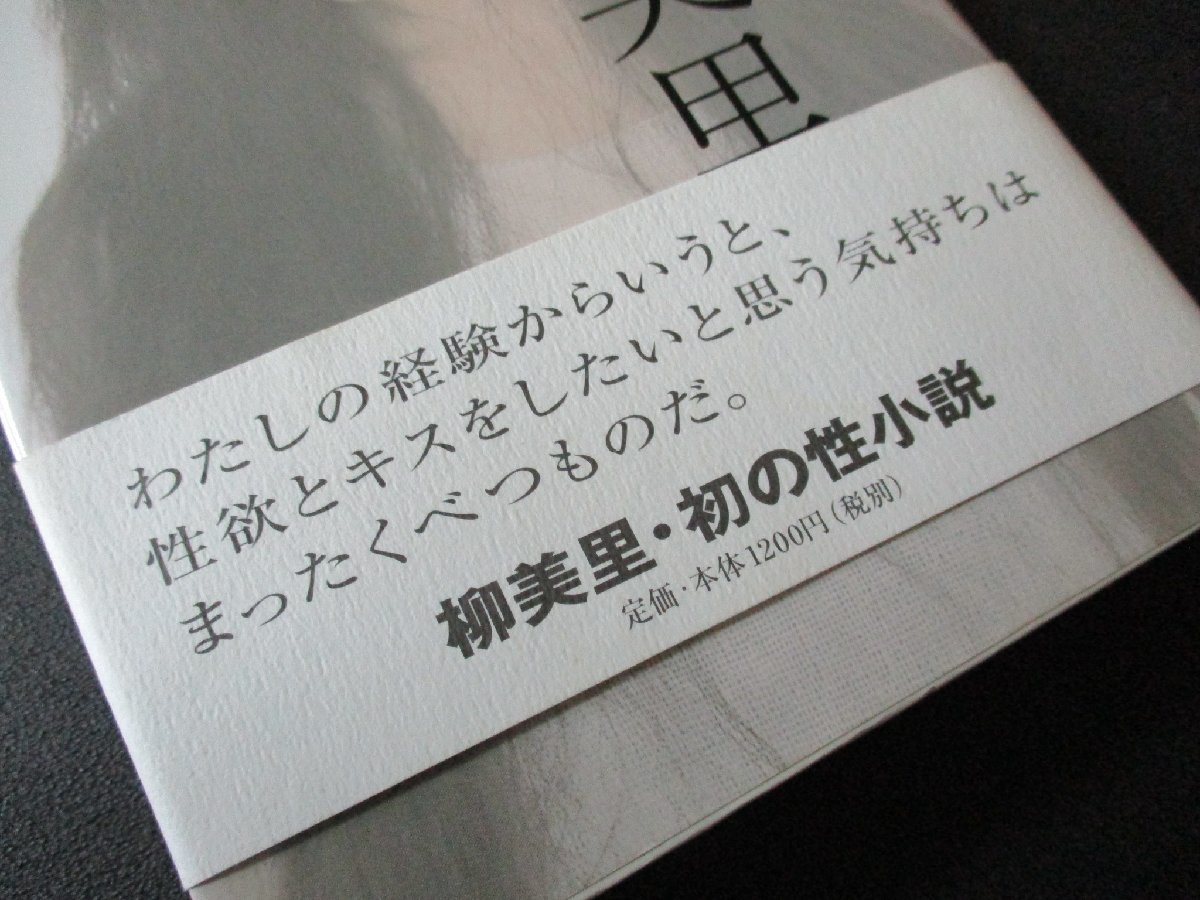 美里
わたしの経験からいうと、
性欲とキスをしたいと思う気持ちは
まったくべつものだ。
柳美里・初の性小説
定価・本体1200円(税別)